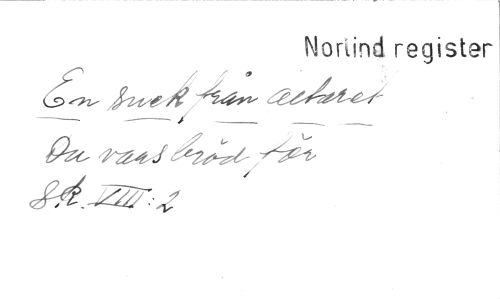 Norlind register
En suck från altaret
Du vars bröd för
Sk. VIII: 2